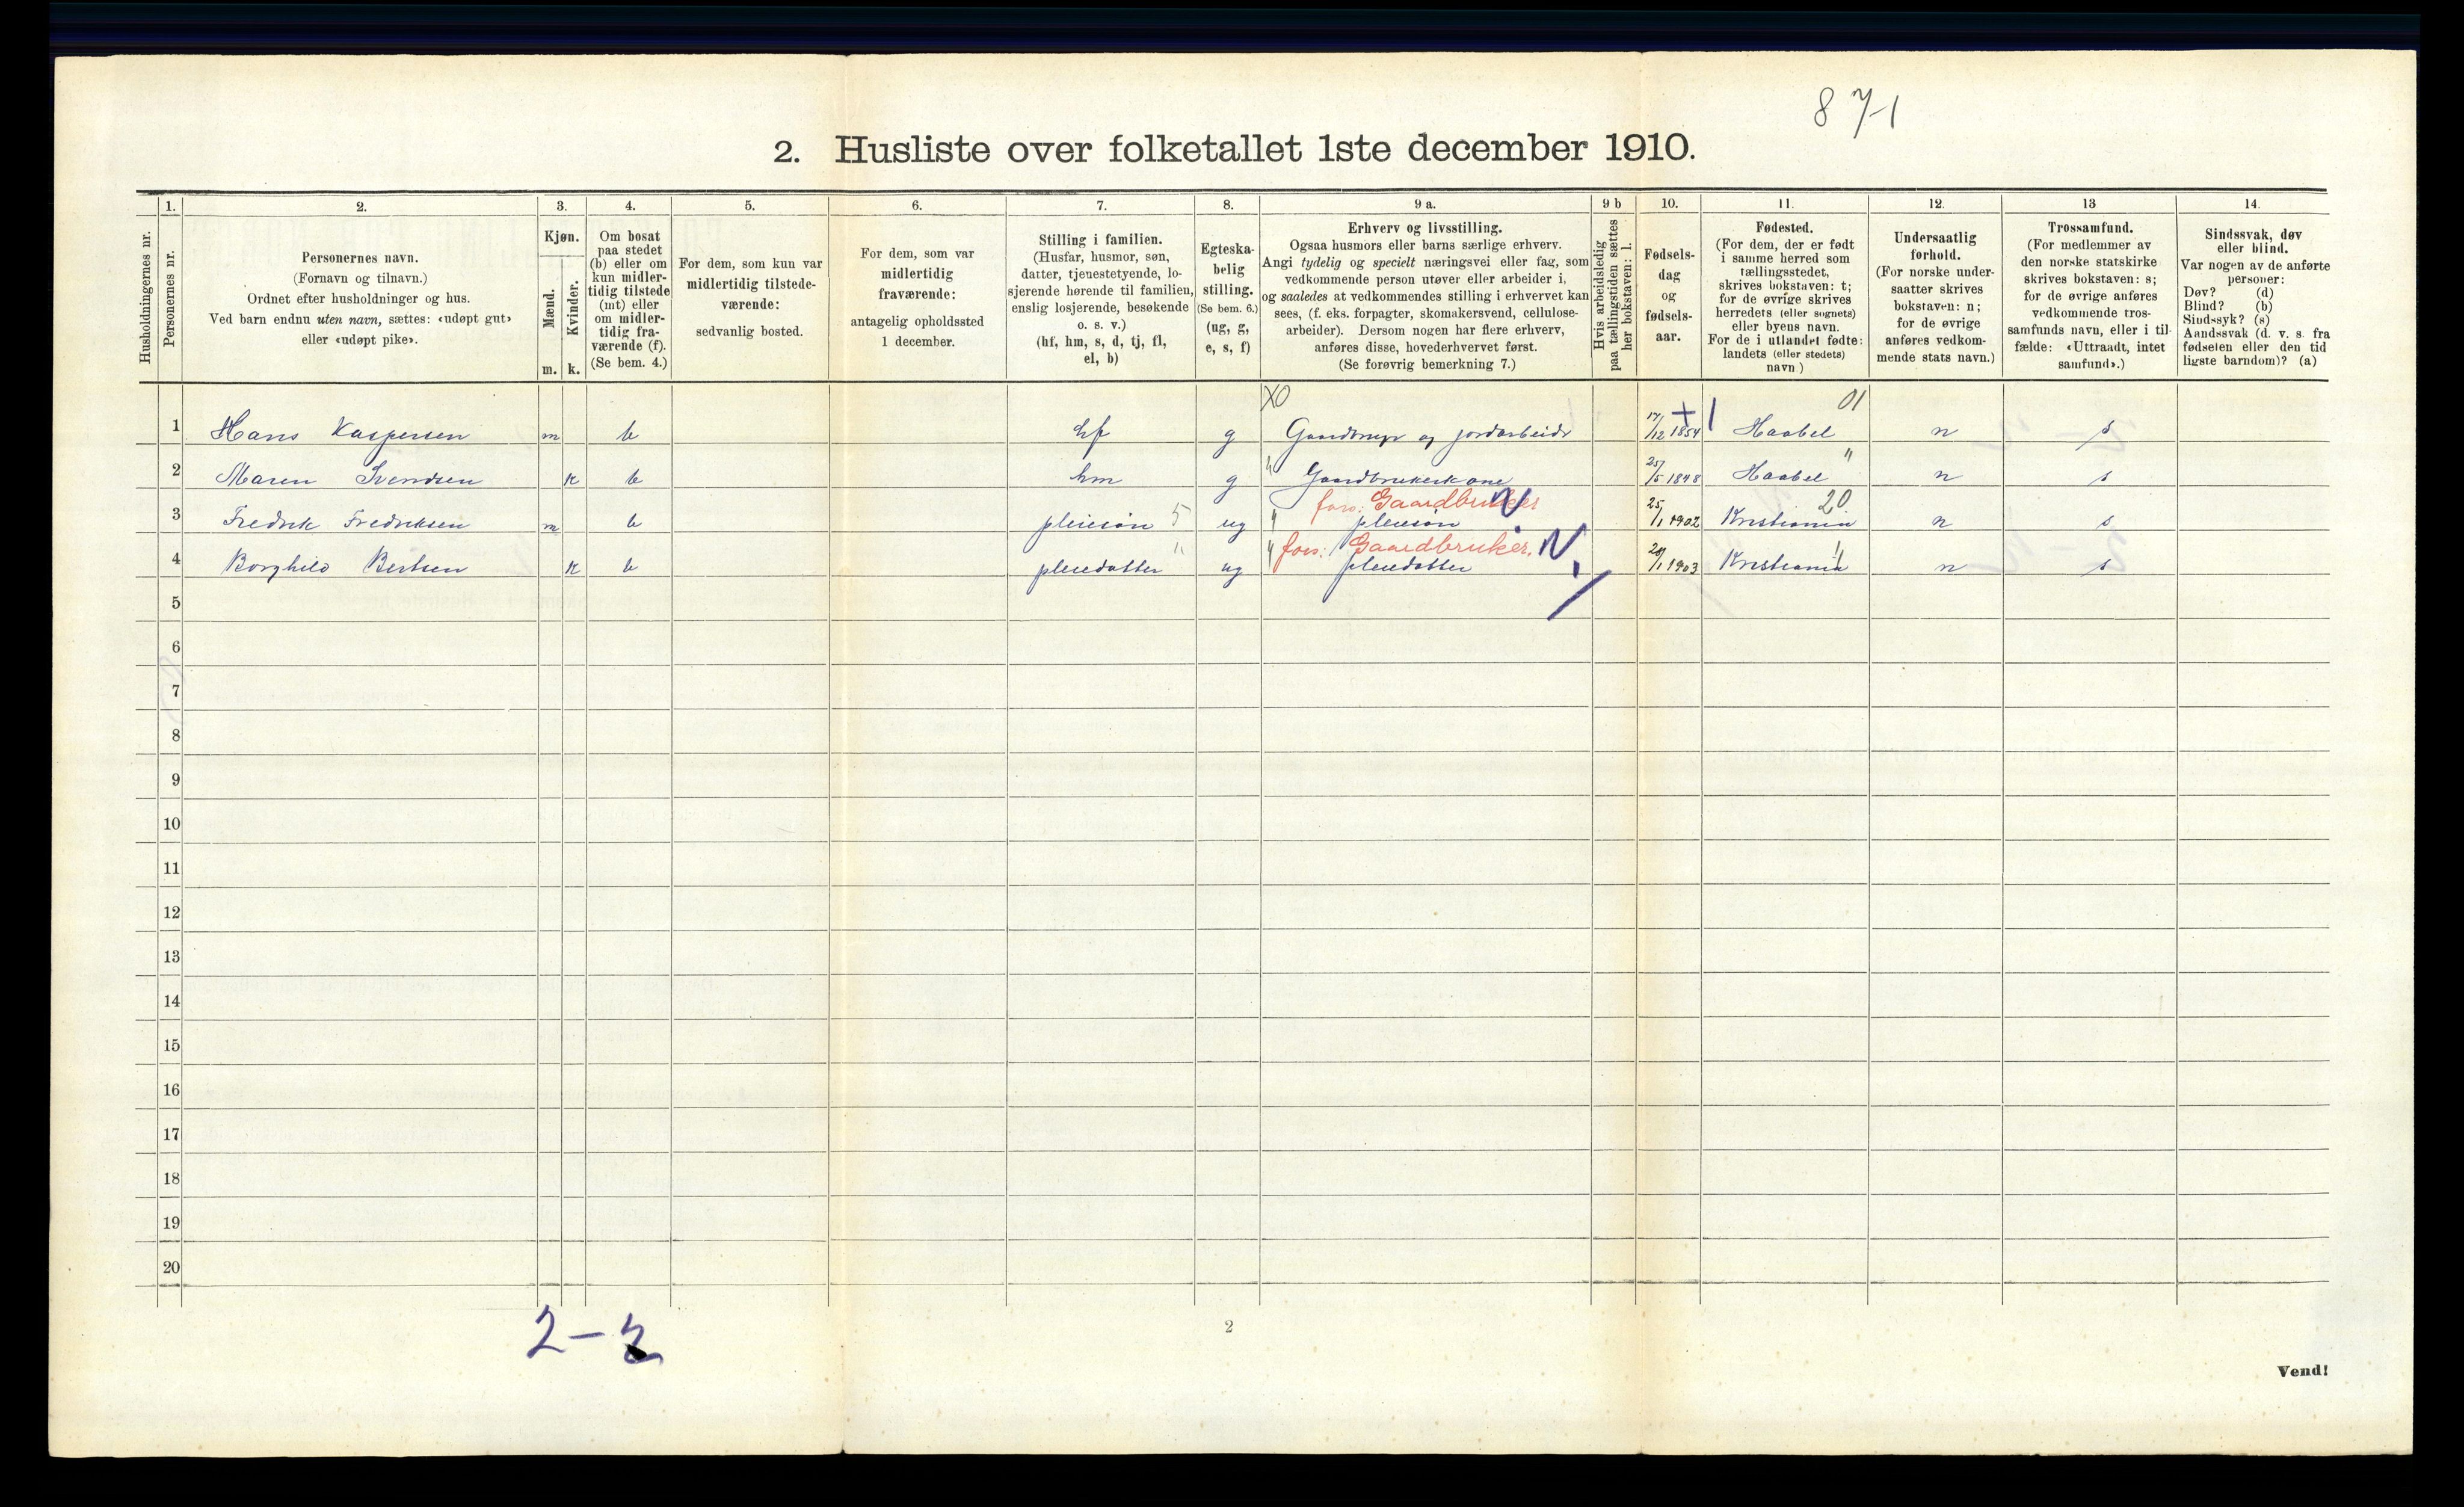 87-1
2. Husliste over folketallet 1ste december 1910.
1. 2. 3. 4. 5. 6. 7. 8. 9 a. 9 b 10. 11. 12. 13 14.
Husholdningernes nr.
Personernes nr.
Personernes navn.
(Fornavn og tilnavn.)
Ordnet efter husholdninger og hus.
Ved barn endnu uten navn, sættes: «udøpt gut»
eller «udøpt pike».
Kjøn.
Mænd.
Kvinder.
m. k.
Om bosat
paa stedet
(b) eller om
kun midler-
tidig tilstede
(mt) eller
om midler-
tidig fra-
værende (f).
(Se bem. 4.)
For dem, som kun var
midlertidig tilstede-
værende:
sedvanlig bosted.
For dem, som var
midlertidig
fraværende:
antagelig opholdssted
1 december.
Stilling i familien.
(Husfar, husmor, søn,
datter, tjenestetyende, lo-
sjerende hørende til familien,
enslig losjerende, besøkende
o. s. v.)
(hf, hm, s, d, tj, fl,
el, b)
Egteska-
belig
stilling.
(Se bem. 6.)
(ug, g,
e, s, f)
Erhverv og livsstilling.
Ogsaa husmors eller barns særlige erhverv.
Angi tydelig og specielt næringsvei eller fag, som
vedkommende person utøver eller arbeider i,
og saaledes at vedkommendes stilling i erhvervet kan
sees, (f. eks. forpagter, skomakersvend, cellulose-
arbeider). Dersom nogen har flere erhverv,
anføres disse, hovederhvervet først.
(Se forøvrig bemerkning 7.)
Hvis arbeidsledig
paa tællingstiden sættes
her bokstaven: l.
Fødsels-
dag
og
fødsels-
aar.
Fødested.
(For dem, der er født
i samme herred som
tællingsstedet,
skrives bokstaven: t;
for de øvrige skrives
herredets (eller sognets)
eller byens navn.
For de i utlandet fødte:
landets (eller stedets)
navn )
Undersaatlig
forhold.
(For norske under-
saatter skrives
bokstaven: n;
for de øvrige
anføres vedkom-
mende stats navn.)
Trossamfund.
(For medlemmer av
den norske statskirke
skrives bokstaven: s;
for de øvrige anføres
vedkommende tros-
samfunds navn, eller i til-
fælde: «Uttraadt, intet
samfund».)
Sindssvak, døv
eller blind.
Var nogen av de anførte
personer:
Døv? (d)
Blind? (b)
Sindssyk? (s)
Aandssvak (d. v. s. fra
fødselen eller den tid
ligste barndom)? (a)
XO 01
1 Hans Kaspersen m b hf g Gaardbruger og jordarbeider 17/12 1854 Haabøl n s
2 Maren Svendsen k b hm g " Gaardbrukerkone 25/5 1848 Haabøl " n s
fors: Gaardbruker N 20
3 Fredrik Fredriksen m b pleiesøn 5 ug " pleiesøn 25/1 1902 Kristiania n s
fors: Gaardbruker. N.
4 Borghild Bertsen k b pleiedatter " ug " pleiedatter 20/1 1903 Kristiania " n s
5
6
7
8
9
10
11
12
13
14
15
16
17
18
19
20
2-2
2
Vend!